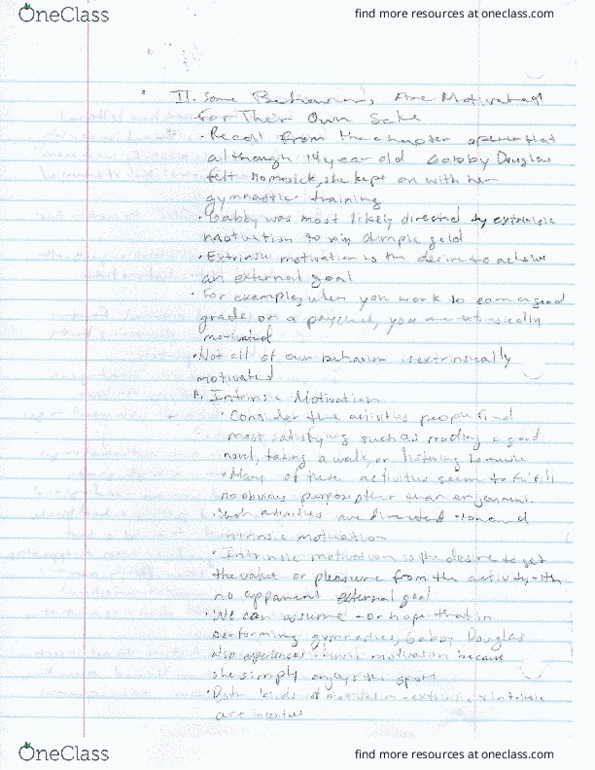 OneClass
find more resources at oneclass.com
II. Some Behaviors, Are Motivated
For Their Own Sake
• Recall from the chapter opener that
although 14 year old Gabby Douglas
felt homesick, she kept on with her
gymnastic training
• Gabby was most likely directed by extrinsic
motivation to win Olympic gold
• Extrinsic motivation is the desire to achieve
an external goal
• For example, when you work to earn a good
grade or a paycheck, you are extrinsically
motivated
• Not all of our behavior is extrinsically
motivated
A. Intrinsic Motivation
• Consider the activities people find
most satisfying such as reading a good
novel, taking a walk, or listening to music
• Many of these activities seem to fulfill
no obvious purpose other than enjoyment.
• Such activities are directed toward
intrinsic motivation
• Intrinsic motivation is the desire to get
the value or pleasure from the activity
no apparent external goal
• We can assume - or hope - that in
performing gymnastics, Gabby Douglas
also experiences intrinsic motivation because
she simply enjoys the sport
• Both kinds of motivation - extrinsic & intrinsic
are incentives
OneClass
find more resources at oneclass.com